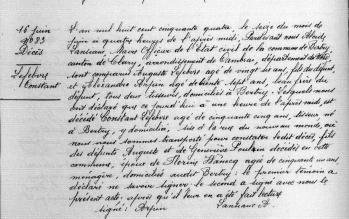 16 juin
N° 83
Décès
Lefebvre
Constant
L'an mil huit cent cinquante quatre le seize du mois de
juin à quatre heures de l'après midi, Pardevant nous
Santiaux, Maire Officier de l'état civil de la commune de Bertry,
canton de Clary, arrondissement de Cambrai, département du
sont comparus Auguste Lefebvre agé de vingt six ans, fils du défunt,
et Alexandre Arpin agé de trente sept ans, beau frère du
défunt, tous deux tisseurs, domiciliés à Bertry : lesquels nous
ont déclaré que ce jourd'hui à une heure de l'après midi, est
décédé Constant Lefebvre agé de cinquante cinq ans, tisseur, né
à Bertry, y domicilié, sis à la rue du nouveau monde, où
nous nous sommes transporté pour constater ledit décès, fils
des défunts Auguste et de Geneviève Poulain décédés en cette
commune, époux de Florine Hennecq agée de cinquante six ans,
ménagère, domiciliée audit Bertry : le premier témoin a
déclaré ne savoir signer le second a signé avec nous le
présent acte après qu'il leur en a été fait lecture
signé : Arpin Santiaux A.